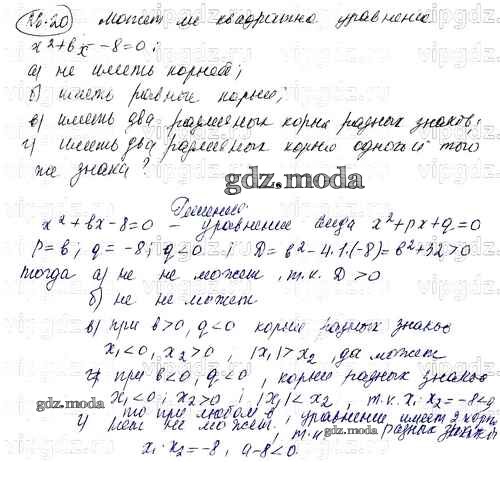 26.20 Может ли квадратное уравнение
x²+bx-8=0;
а) не иметь корней;
б) иметь равные корни;
в) иметь два различных корня разных знаков;
г) иметь два различных корня одного и того
же знака?
gdz.moda
Решение
x²+bx-8=0 - уравнение вида x²+px+q=0
p=b; q=-8; q<0; D=b²-4·1·(-8)=b²+32>0
тогда а) не не может, т.к. D>0
б) не не может
в) при b>0, q<0 корни разных знаков
x₁<0, x₂>0, |x₁|>x₂, да может
при b<0, q<0, корни разных знаков
gdz.moda
x₁<0; x₂>0; |x₁|<x₂, т.к. x₁·x₂=-8<0
то при любом b, уравнение имеет 2 корня
г) не может, т.к. разных знаков
gdz.moda
x₁·x₂=-8, а-8<0